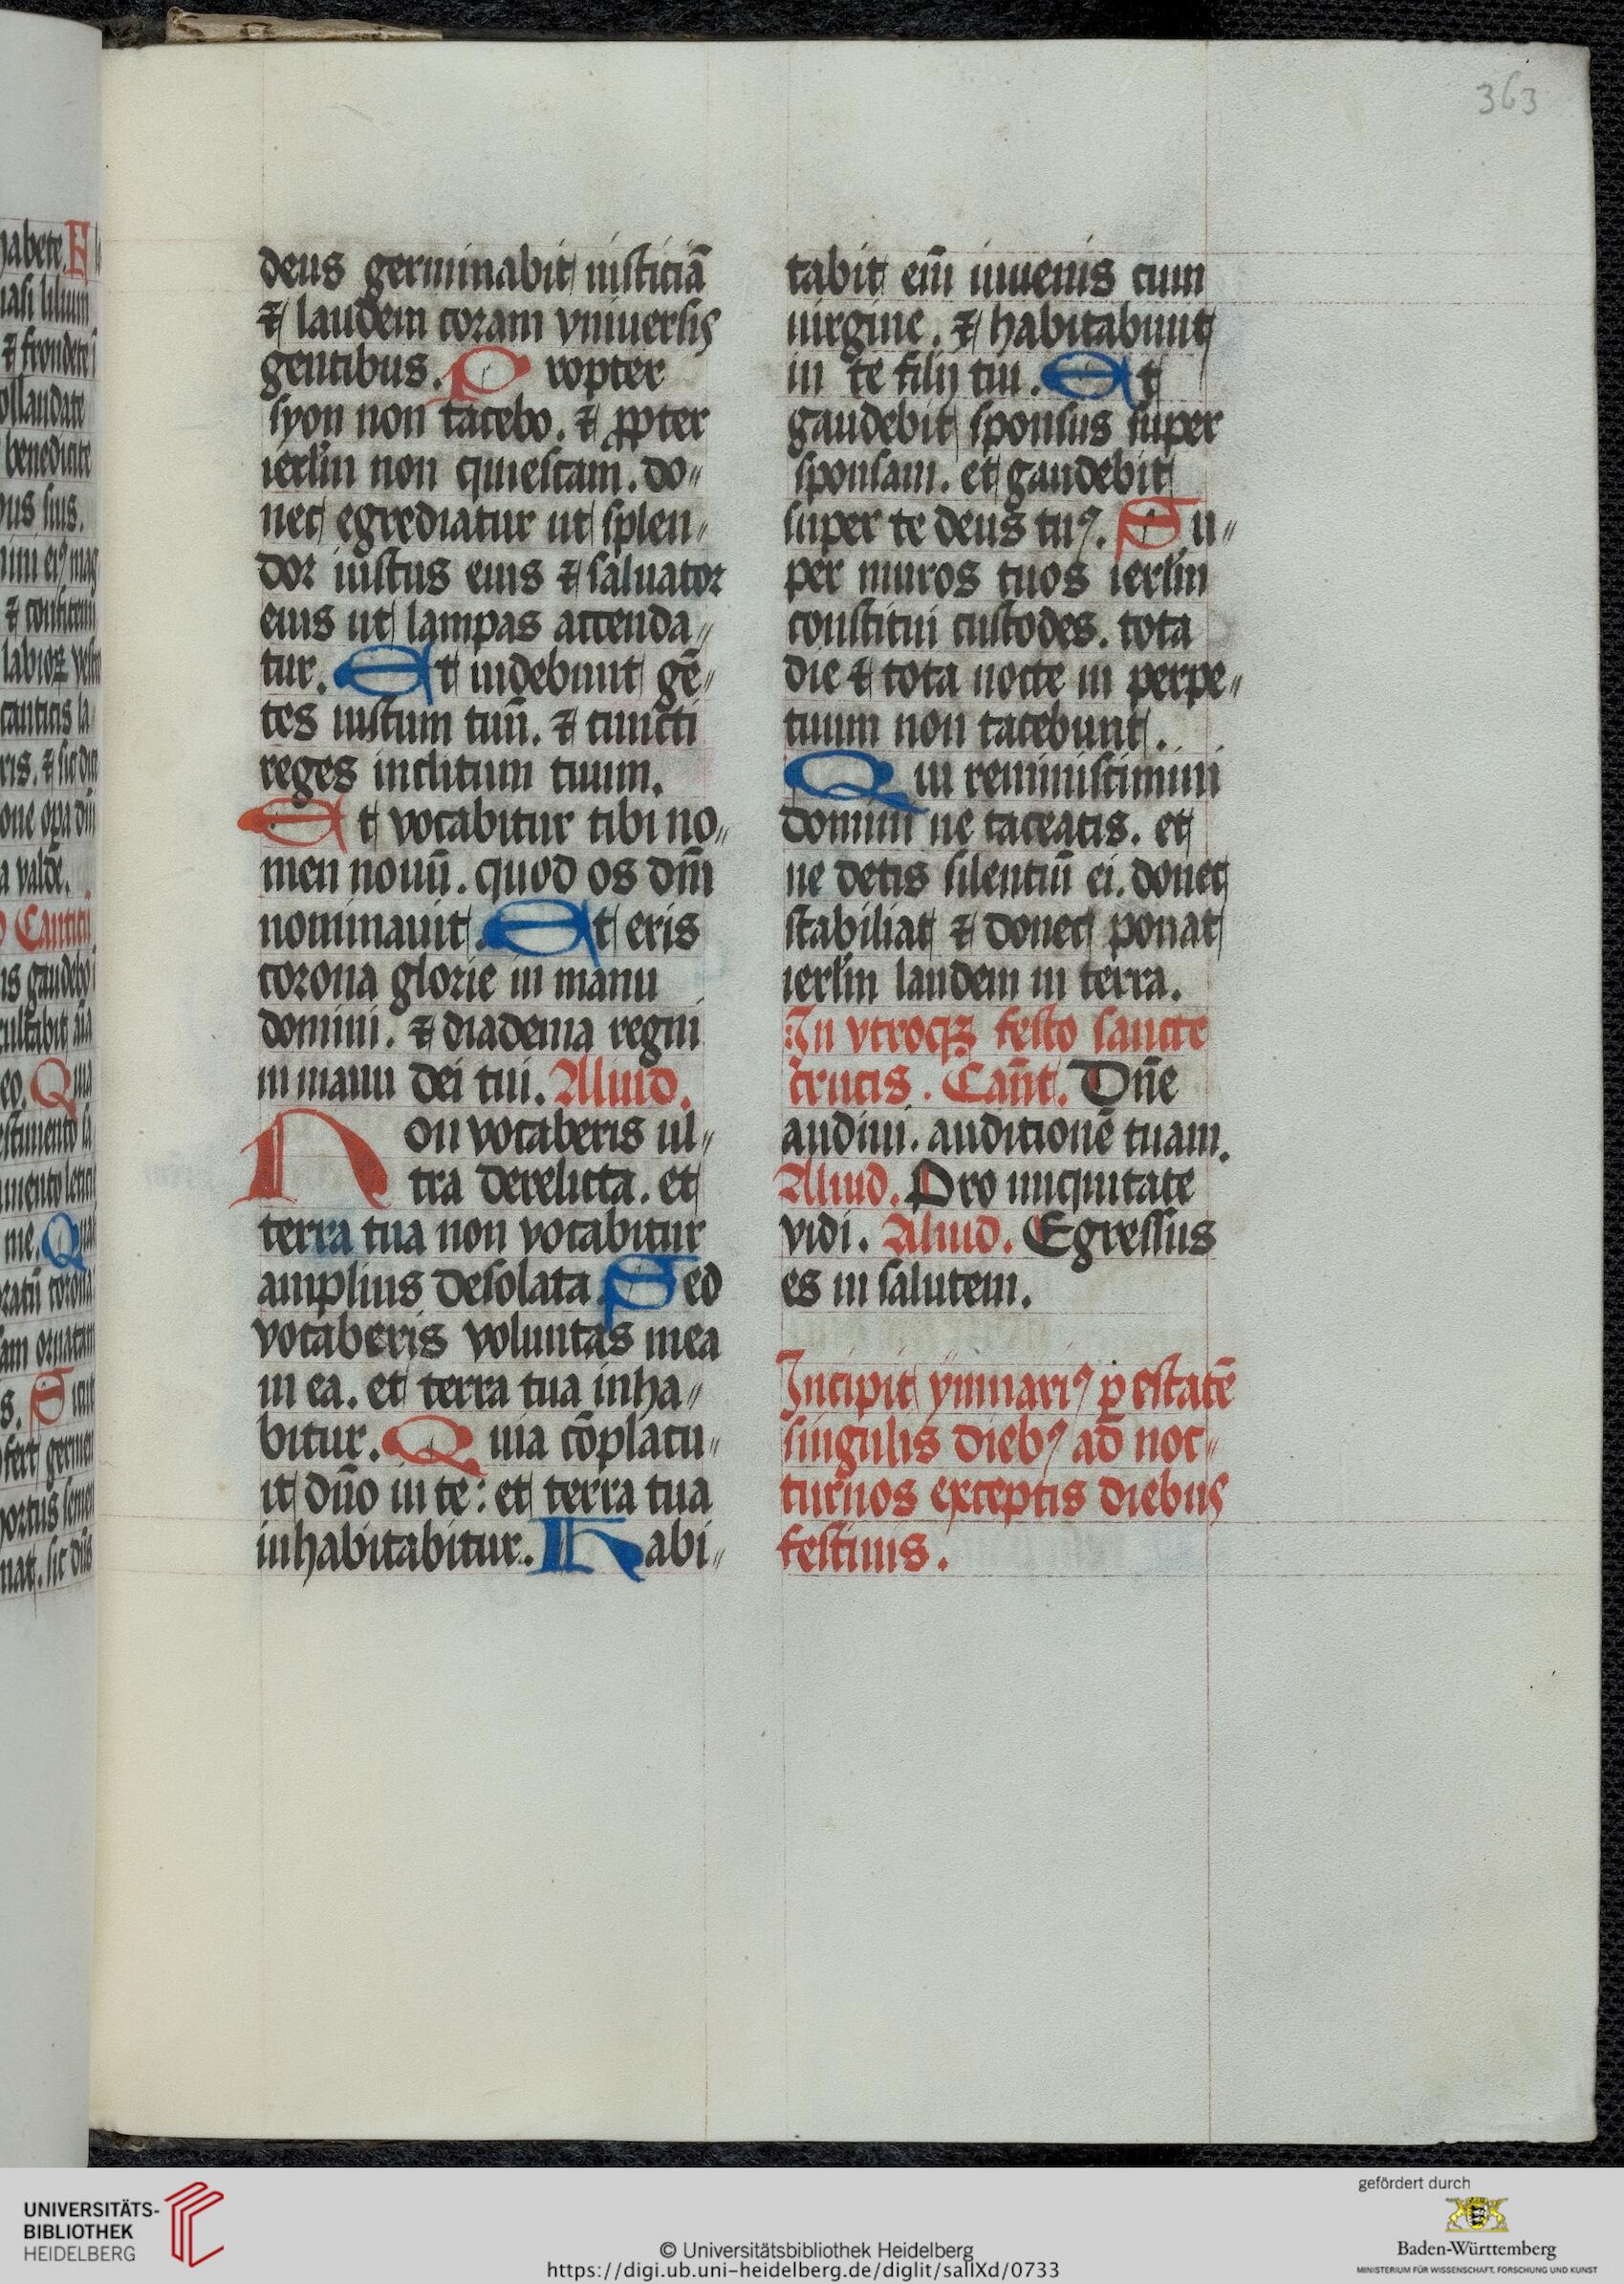 363
deus germinabit iusticiā
⁊ laudem coram vniuersis
gentibus. Propter
syon non tacebo. ⁊ ꝓpter
ierlm̄ non quiescam. do„
nec egrediatur ut splen„
dor iustus eius ⁊ saluator
eius ut lampas accenda„
tur. Et uidebunt gē„
tes iustum tuū. ⁊ cuncti
reges inclitum tuum.
Et vocabitur tibi no„
men nouū. quod os dn̄i
nominauit. Et eris
corona glorie in manu
domini. ⁊ diadema regni
in manu dei tui. Aliud.
Non vocaberis ul„
tra derelicta. et
terra tua non vocabitur
amplius desolata. Sed
vocaberis voluntas mea
in ea. et terra tua inha„
bitur. Quia cōplacu„
it dn̄o in te: et terra tua
inhabitabitur. Habi„
tabit eni̅ iuuenis cum
uirgine. ⁊ habitabunt
in te filij tui. Et
gaudebit sponsus super
sponsam. et gaudebit
super te deus tuꝰ. Su„
per muros tuos ierlm̄
constitui custodes. tota
die ⁊ tota nocte in perpe„
tuum non tacebunt.
Qui reminiscimini
domini ne taceatis. et
ne detis silentiū ei. donec
stabiliat ⁊ donec ponat
ierlm̄ laudem in terra.
In vtroqꝫ festo sancte
crucis. Can̄t. Dn̄e
audiui. auditionē tuam.
Aliud. Pro iniquitate
vidi. Aliud. Egressus
es in salutem.
Incipit ymnariꝰ ꝑ estatē
singulis diebꝰ ad noc„
turnos exceptis diebus
festiuis.
UNIVERSITÄTS-
BIBLIOTHEK
HEIDELBERG
© Universitätsbibliothek Heidelberg
https://digi.ub.uni-heidelberg.de/diglit/salIXd/0733
gefördert durch
Baden-Württemberg
MINISTERIUM FÜR WISSENSCHAFT, FORSCHUNG UND KUNST